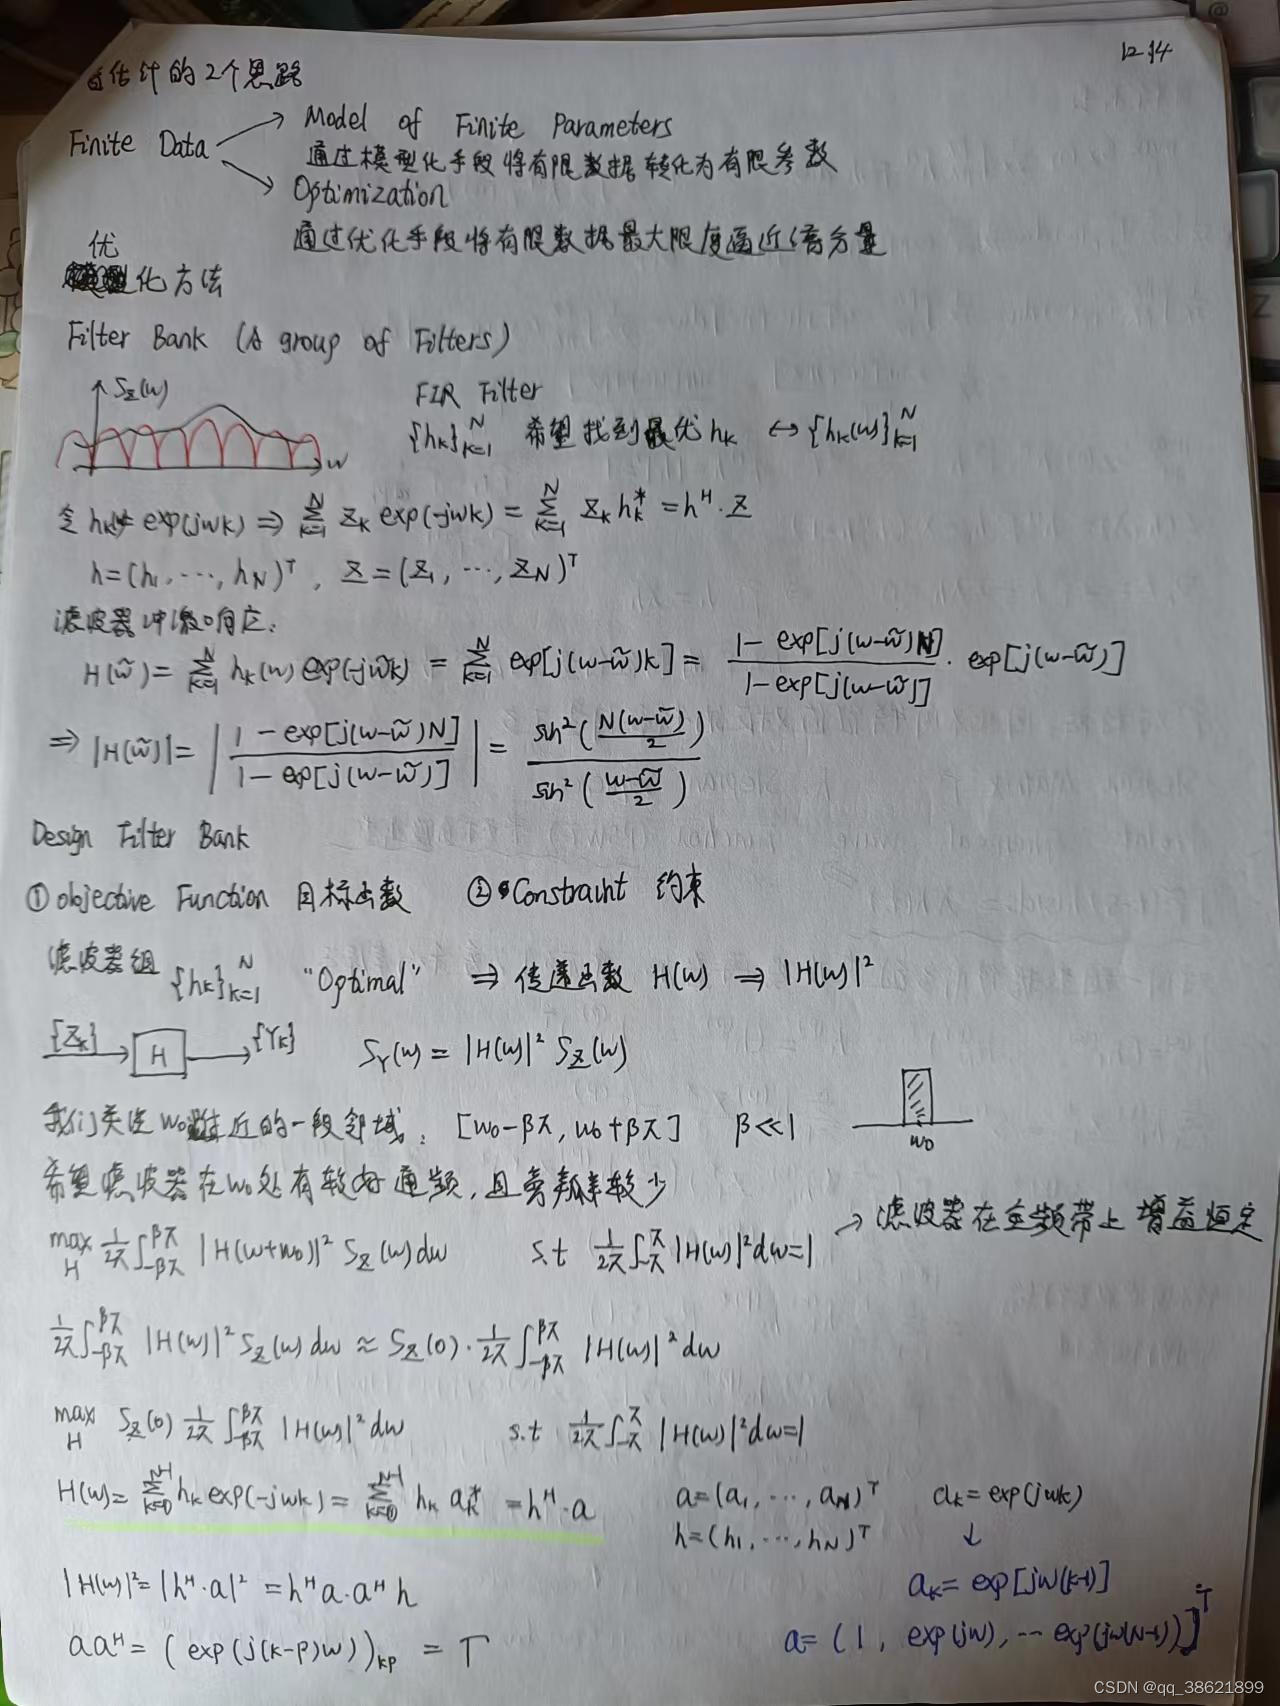 12-14
估计的2个思路
Finite Data
Model of Finite Parameters
通过模型化手段将有限数据转化为有限参数
Optimization
通过优化手段将有限数据最大限度逼近 分量
优
化方法
Filter Bank (A group of Filters)
S_Z(w)
w
FIR Filter
{h_k}_{k=1}^N 希望找到最优 h_k ↔ {h_k(w)}_{k=1}^N
令 h_k = exp(jwk) ⇒ Σ_{k=1}^N Z_k exp(-jwk) = Σ_{k=1}^N Z_k h_k^* = h^H · Z
h = (h_1, ..., h_N)^T , Z = (Z_1, ..., Z_N)^T
滤波器冲激响应:
H(w̃) = Σ_{k=1}^N h_k(w) exp(-jw̃k) = Σ_{k=1}^N exp[j(w-w̃)k] = (1 - exp[j(w-w̃)N])/(1 - exp[j(w-w̃)]) · exp[j(w-w̃)]
⇒ |H(w̃)| = |(1 - exp[j(w-w̃)N])/(1 - exp[j(w-w̃)])| = sin²(N(w-w̃)/2)/sin²((w-w̃)/2)
Design Filter Bank
① objective Function 目标函数 ② Constraint 约束
滤波器组 {h_k}_{k=1}^N "Optimal" ⇒ 传递函数 H(w) ⇒ |H(w)|²
{Z_k} H {Y_k} S_Y(w) = |H(w)|² S_Z(w)
我们关注 w_0 附近的一段邻域: [w_0-βπ, w_0+βπ] β≪1
w_0
希望滤波器在w_0处有较好通频,且旁瓣较少
max_H 1/2π ∫_{-βπ}^{βπ} |H(w+w_0)|² S_Z(w)dw s.t 1/2π ∫_{-π}^{π} |H(w)|²dw=1 → 滤波器在全频带上增益恒定
1/2π ∫_{-βπ}^{βπ} |H(w)|² S_Z(w)dw ≈ S_Z(0) · 1/2π ∫_{-βπ}^{βπ} |H(w)|² dw
max_H S_Z(0) 1/2π ∫_{-βπ}^{βπ} |H(w)|² dw s.t 1/2π ∫_{-π}^{π} |H(w)|²dw=1
H(w) = Σ_{k=0}^{N-1} h_k exp(-jwk) = Σ_{k=0}^{N-1} h_k a_k^* = h^H · a
a = (a_1, ..., a_N)^T a_k = exp(jwk)
h = (h_1, ..., h_N)^T ↓
|H(w)|² = |h^H · a|² = h^H a · a^H h
a_k = exp[jw(k-1)]
aa^H = (exp(j(k-p)w))_{kp} = T
a = (1, exp(jw), ... exp(jw(N-1))]^T
CSDN @qq_38621899